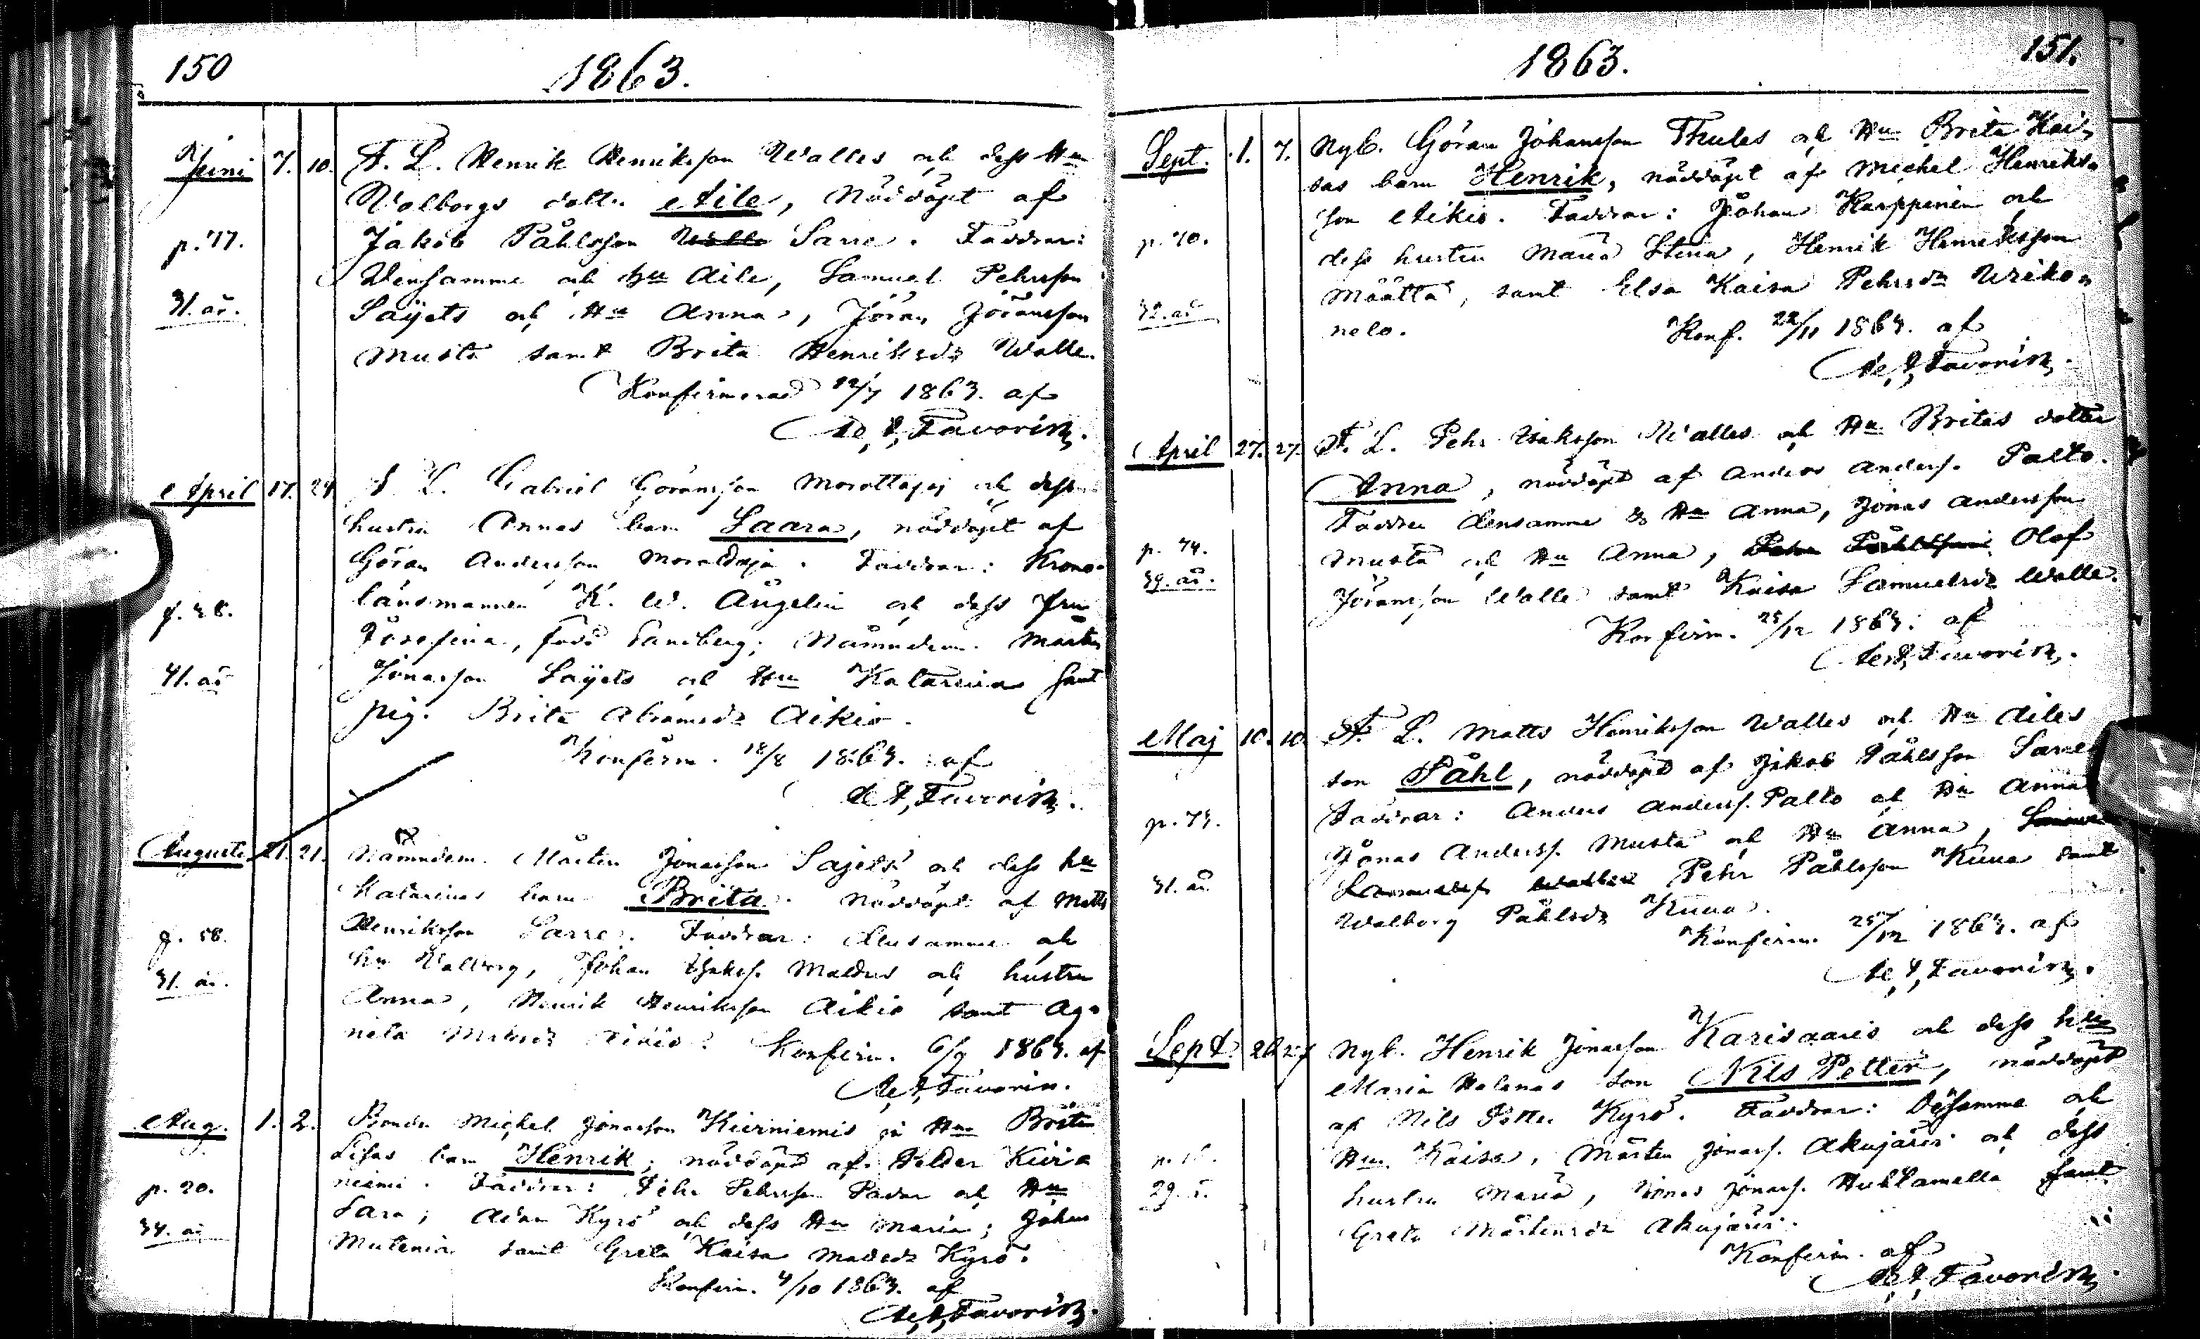 150
1863.
Juni 7. 10. F. L. Henrik Henriksson Walles och dess Hu
Walborgs dotter Aile, Nöddöpt af
p. 77. Jakob Påhlsson Sarre. Faddrar:
Densamme och hu Aile, Samuel Pehrsson
31. år. Sayets och Hu Anna, Jöran Jöransson
Musta samt Brita Henriksdr Walle.
Konfirmerad 12/7 1863. af
Favorin.
April 17. 24 F. L. Gabriel Göransson Morottaja och dess
hustru Annas barn Saara, nöddöpt af
Göran Andersson Morottaja. Faddrar: Krono-
länsmannen K. W. Ångelin och dess fru
p. 28. Josefina, född Sandberg; Nämndem. Mårten
41. år Jonasson Sayets och Hu Katarina samt
pig. Brita Abramsdr Aikio.
Konfirm. 18/8 1863. af
Favorin.
Augusti 21. 21. Nämndem. Mårten Jonasson Sajets och dess hu
Katarinas barn Brita. Nöddöpt af Matts
Henriksson Sarre. Faddrar: Densamme och
p. 58. hu Walborg, Johan Isakss. Maldus och hustru
31. år. Anna, Henrik Henriksson Aikio samt Ag-
neta Aikio. Konfirm. 6/9 1863. af
Favorin.
Aug. 1. 2. Bonden Michel Jonasson Kierniemis och Hu Brita
Lisas barn Henrik; nöddöpt af Helder Kivi-
niemi. Faddrar: Pehr Pehrsson Padar och Hu
p. 20. Sara; Adam Kyrö och dess Hu Maria; Johan
34. år Mutenia samt Greta Kaisa Madsdr Kyrö.
Konfirm. 4/10 1863. af
Favorin.
151.
1863.
Sept. 1. 7. Nyb. Göran Johansson Thules och Hu Brita Kai-
sas barn Henrik, nöddöpt af Michel Henriks-
son Aikio. Faddrar: Johan Karppinen och
p. 70. dess hustru Maria Stina, Henrik Henriksson
32. år Määttä, samt Elsa Kaisa Pehrsdr Uriko-
nelo. Konf. 22/11 1863. af
Favorin.
April 27. 27. F. L. Pehr Isaksson Walles och Hu Britas dotter
Anna, nöddöpt af Anders Anders. Palto.
Faddrar densamme & Hu Anna, Jonas Andersson
p. 74. Musta och Hu Anna, Olof
39. år. Jöransson Walle samt Kaisa Samuelsdr Walle.
Konfirm. 25/12 1863. af
Favorin.
Maj 10. 10. F. L. Matts Henriksson Walles och Hu Ailes
son Påhl, nöddöpt af Jakob Påhlsson Sarre
p. 73. Faddrar: Anders Anderss. Palto och Hu Anna
Jonas Anderss. Musta och Hu Anna,
31. år Pehr Påhlsson Kuua samt
Walborg Påhlsdr Kuua.
Konfirm. 25/12 1863. af
Favorin.
Sept. 26. 27 Nyb. Henrik Jonasson Karisaaris och dess hu
Maria Helenas son Nils Petter, nöddöpt
af Nils Petter Kyrö. Faddrar: Dessamme och
Hu Kaisa, Mårten Jonass. Akujärvi och dess
29. hustru Maria, Jonas Jonass. samt
Greta Mårtensdr Akujärvi.
Konfirm. af
Favorin.